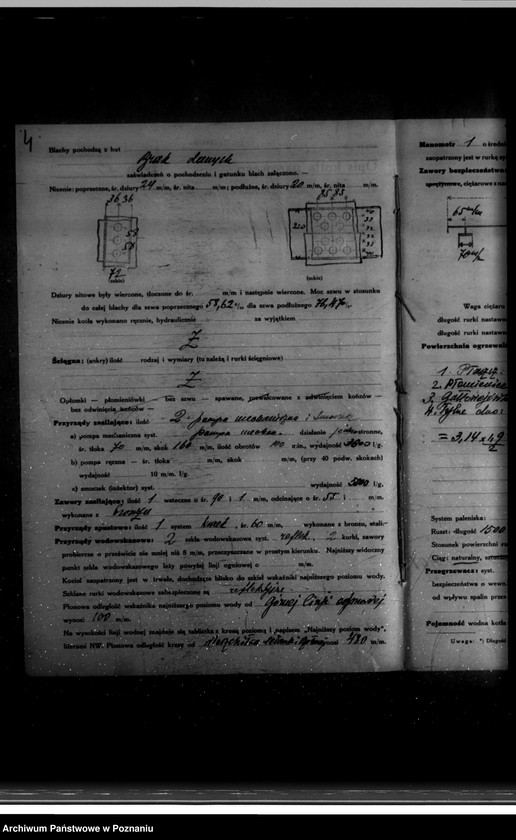 4
Blachy pochodzą z hut Brak danych
zaświadczeń o pochodzeniu i gatunku blach załączono. —
Nicenie: poprzeczne, śr. dziury 24 m/m, śr. nita m/m; podłużne, śr. dziury 20 m/m, śr. nita m/m.
36 36
35 35
(szkic)
(szkic)
Dziury nitowe były wiercone, tłoczone do śr. m/m i następnie wiercone. Moc szwu w stosunku
do całej blachy dla szwu poprzecznego 58,62 % dla szwu podłużnego 76,47 %
Nicenie kotła wykonano ręcznie, hydraulicznie za wyjątkiem
Ściągna: (ankry) ilość rodzaj i wymiary (tu należą i rurki ściągniowe)
Opłomki — płomieniówki — bez szwu — spawane,
bez odwinięcia końców —
Przyrządy zasilające: ilość 2 - pompa mechaniczna i
a) pompa mechaniczna syst. działanie
śr. tłoka 70 m/m, skok 160 m/m, ilość obrotów 100 n.in., wydajność l/g.
b) pompa ręczna — śr. tłoka m/m, skok m/m, (przy 40 podw. skokach)
wydajność 10 m/m. l/g.
c) smoczek (inżektor) syst. wydajność l/g.
Zawory zasilające: ilość 1 wsteczne o śr. 90 i 1 m/m, odcinające o śr. 55 i m/m.
wykonane z bronzu
Przyrządy spustowe: ilość 1 system kurek, śr. 60 m/m, wykonane z bronzu, stali-
Przyrządy wodowskazowe: 2 szkła wodowskazowe syst. reflek. 2 kurki, zawory
probiercze o prześwicie nie mniej niż 8 m/m, przeczyszczane w prostym kierunku. Najniższy widoczny
punkt szkła wodowskazowego leży powyżej linji ogniowej o m/m.
Kocioł zaopatrzony jest w trwałe, dochodzące blisko do szkieł wskaźniki najniższego poziomu wody.
Szklane rurki wodowskazowe zabezpieczone są
Pionowa odległość wskaźnika najniższego poziomu wody od Górnej linji ogniowej
wynosi 100 m/m.
Na wysokości linji wodnej znajduje się tabliczka z kresą poziomą i napisem „Najniższy poziom wody",
literami NW. Pionowa odległość kresy od wynosi 480 m/m.
Manometr 1 o średn
zaopatrzony jest w rurkę sy
Zawory bezpieczeństwa
sprężynowe, ciężarowe z na
65 m/m
70 m/m
Waga ciężaru
długość rurki nastaw
długość rurki nastaw
Powierzchnia ogrzewna
2. Płomienica
4. Tylne dno:
System paleniska:
Ruszt: długość 1500
Stosunek powierzchni
Ciąg: naturalny,
Przegrzewacz: syst.
bezpieczeństwa o wewn.
od wpływu spalin przez
Pojemność wodna kotła
Uwaga: *) Długość
Archiwum Państwowe w Poznaniu